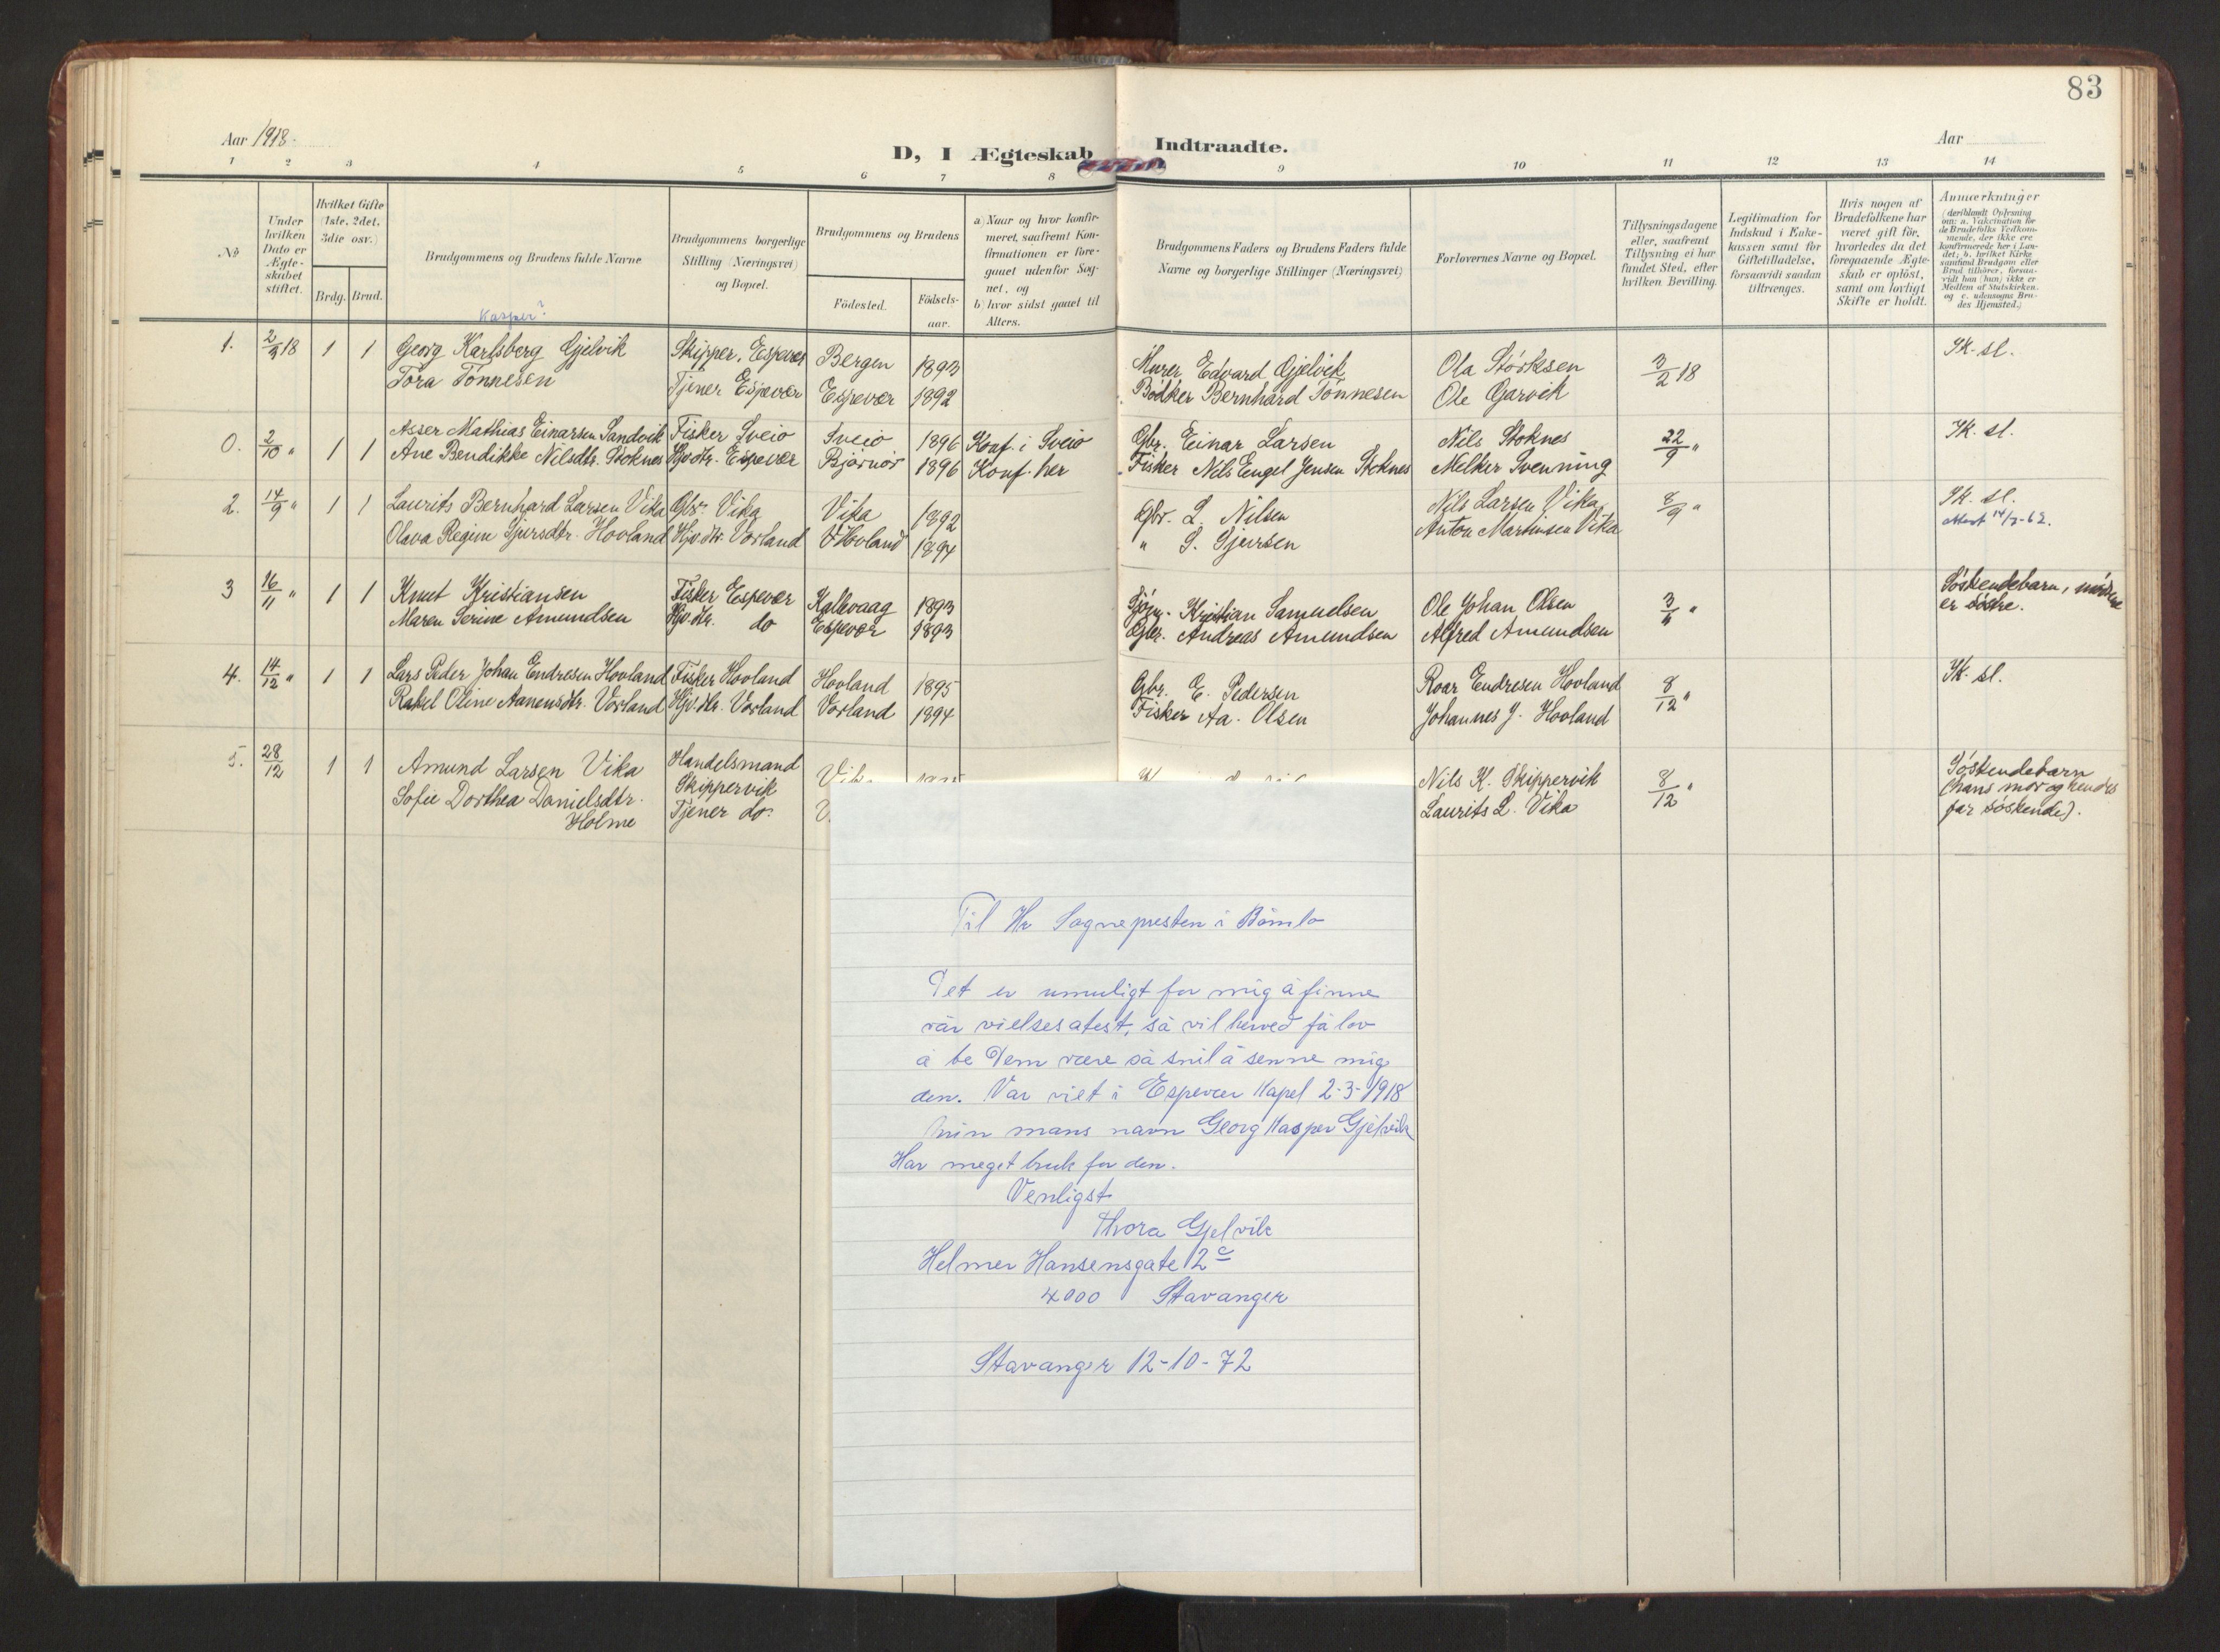 83
Aar 1918.
D, I Ægteskab Indtraadte.
Aar
1 2 3 4 5 6 7 8 9 10 11 12 13 14
No
Under hvilken Dato er Ægteskabet stiftet.
Hvilket Gifte (1ste, 2det, 3die osv.)
Brdg. Brud.
Brudgommens og Brudens fulde Navne
Brudgommens borgerlige Stilling (Næringsvei) og Bopæl.
Brudgommens og Brudens
Fødested.
Fødselsaar.
a) Naar og hvor konfirmeret, saafremt Konfirmationen er foregaaet udenfor Sognet, og
b) hvor sidst gaaet til Alters.
Brudgommens Faders og Brudens Faders fulde Navne og borgerlige Stillinger (Næringsvei)
Forlovernes Navne og Bopæl.
Tillysningsdagene eller, saafremt Tillysning ei har fundet Sted, efter hvilken Bevilling.
Legitimation for Indskud i Enkekassen samt for Giftetilladelse, forsaavidt saadan tiltrænges.
Hvis nogen af Brudefolkene har været gift før, hvorledes da det foregaaende Ægteskab er opløst, samt om lovligt Skifte er holdt.
Anmærkninger
(deriblandt Oplysning om: a. Vakcination for de Brudefolks Vedkommende, der ikke ere konfirmerede her i Landet; b. hvilket Kirkesamfund Brudgom eller Brud tilhører, forsaavidt han (hun) ikke er Medlem af Statskirken. og c. udensogns Brudes Hjemsted.)
Kasper?
1. 2/3 18 1 1 Georg Karlsberg Gjelvik Skipper, Espevær Bergen 1893 Murer Edvard Gjelvik Ola Størksen 3/2 18 Ik. sl.
Tora Tønnesen Tjener Espevær Espevær 1892 Bødker Bernhard Tønnesen Ole Garvik
0. 2/10 " 1 1 Asser Mathias Einarsen Sandvik Fisker Sveio Sveio 1896 Konf. i Sveio Gbr. Einar Larsen Nils Stoknes 22/9 " Ik. sl.
Ane Bendikke Nilsdtr. Stoknes Hjv.dtr. Espevær Bjørnør 1896 Konf. her Fisker Nils Engel Jensen Stoknes Melker Svenning
2. 14/9 " 1 1 Laurits Bernhard Larsen Vika Gbr. Vika Vika 1892 Gbr. L. Nilsen Nils Larsen Vika 8/9 " Ik. sl.
Olava Regine Sjursdtr. Hovland Hjv.dtr. Vorland Hovland 1894 " S. Sjursen Anton Martinsen Vika
3 16/11 " 1 1 Knut Kristiansen Fisker Espevær Kallevaag 1893 Kristian Samuelsen Ole Johan Olsen 3/11 " Søskendebarn, mødrene
Maren Serine Amundsen Hjv.dtr. do Espevær 1893 Gbr. Andreas Amundsen Alfred Amundsen er søstre.
4. 14/12 " 1 1 Lars Peder Johan Endresen Hovland Fisker Hovland Hovland 1895 Gbr. E. Pedersen Roar Endresen Hovland 8/12 " Ik. sl.
Rakel Oline Aanensdtr. Vorland Hjv.dtr. Vorland Vorland 1894 Fisker Aa. Olsen Johannes J. Hovland
5. 28/12 1 1 Amund Larsen Vika Handelsmand Skippervik Nils K. Skippervik 8/12 " Søskendebarn
Sofie Dorthea Danielsdtr. Holme Tjener do. Laurits L. Vika (hans mor og hendes
far søskende).
Til Hr Sognepresten i Bømlo
Det er umuligt for mig å finne
vår vielsesatest, så vil herved få lov
å be Dem være så snil å senne mig
den. Var viet i Espevær Kapel 2-3-1918
min mans navn Georg Kasper Gjelvik
Har meget bruk for den.
Venligst
Thora Gjelvik
Helmer Hansensgate 12 c
4000 Stavanger
Stavanger 12-10-72